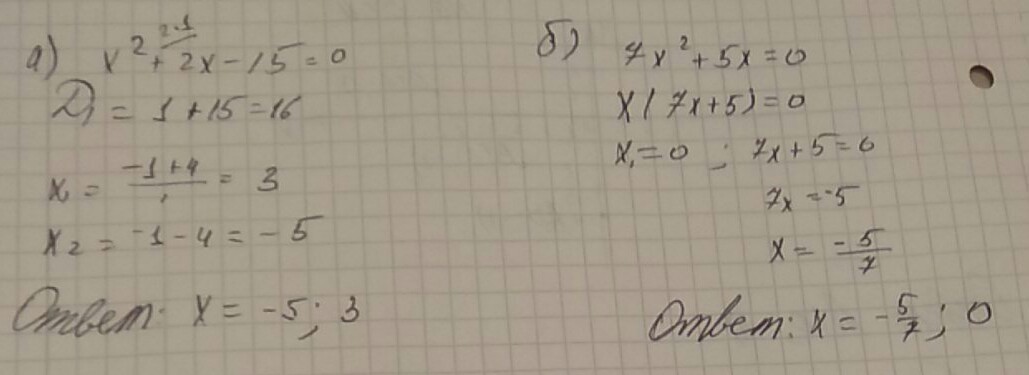 а) x² + 2x - 15 = 0
2·1
D₁ = 1 + 15 = 16
x₁ = (-1+4)/1 = 3
x₂ = -1 - 4 = -5
Ответ: x = -5; 3
б) 7x² + 5x = 0
x(7x+5) = 0
x₁ = 0 ; 7x + 5 = 0
7x = -5
x = -5/7
Ответ: x = -5/7; 0